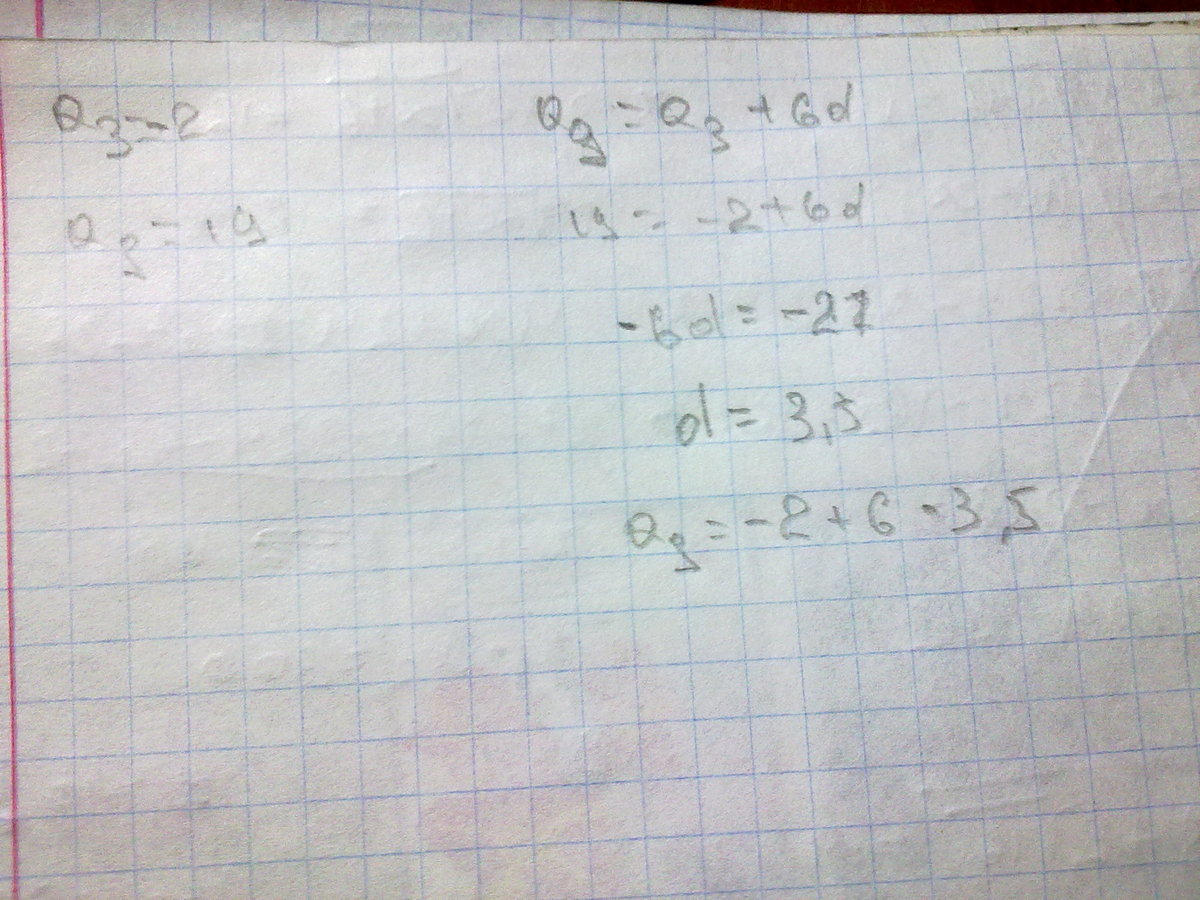 a₃ = -2
a₉ = 19
a₉ = a₃ + 6d
19 = -2 + 6d
-6d = -21
d = 3,5
a₉ = -2 + 6 · 3,5